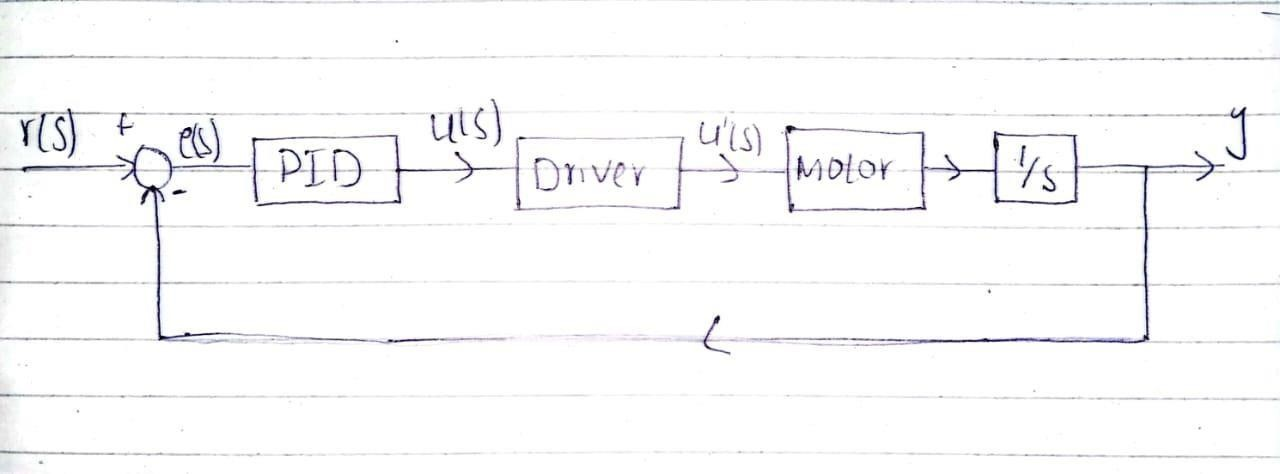 r(s) + e(s) PID u(s) Driver u'(s) Motor 1/s y
-